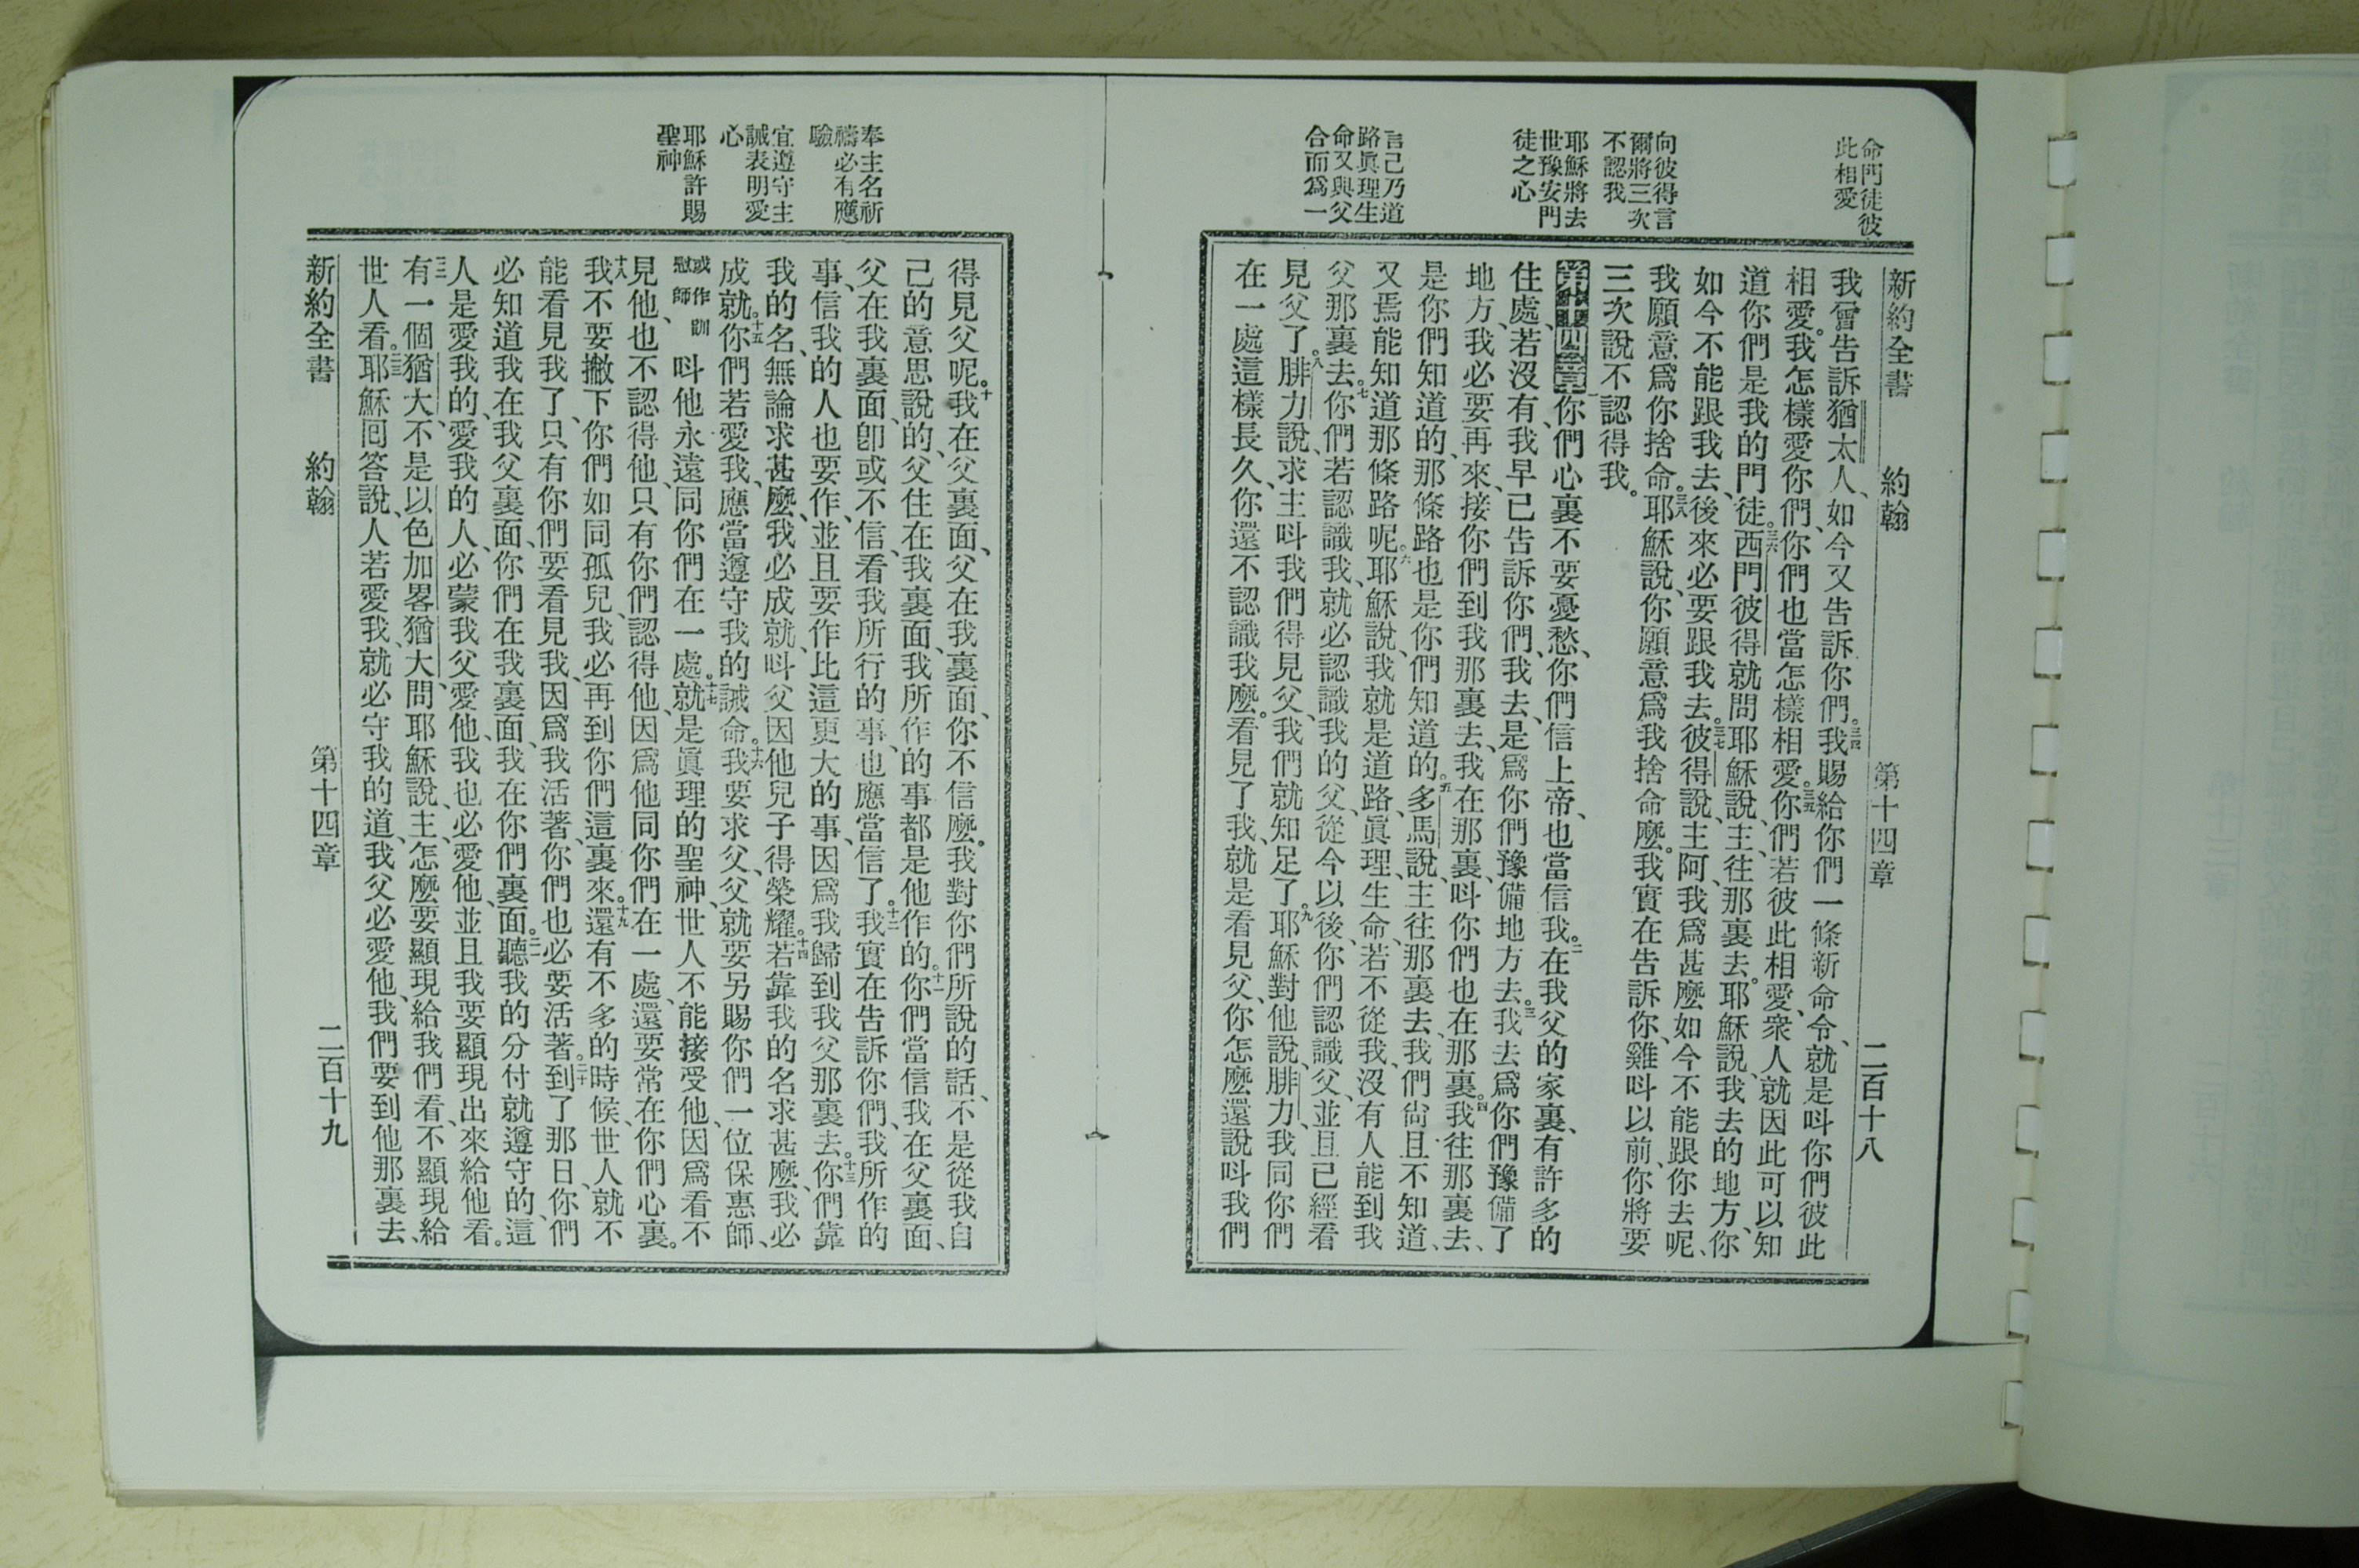 命門徒彼
此相愛
向彼得言
爾將三次
不認我
耶穌將去
世豫安門
徒之心
言己乃道
路眞理生
命又與父
合而爲一
新約全書 約翰 第十四章 二百十八
我曾告訴猶太人、如今又告訴你們。三四我賜給你們一條新命令、就是呌你們彼此
相愛。我怎樣愛你們、你們也當怎樣相愛。三五你們若彼此相愛、衆人就因此可以知
道你們是我的門徒。三六西門彼得就問耶穌說、主往那裏去。耶穌說、我去的地方、你
如今不能跟我去、後來必要跟我去。三七彼得說、主阿、我爲甚麽如今不能跟你去呢、
我願意爲你捨命。三八耶穌說、你願意爲我捨命麽。我實在告訴你、雞呌以前、你將要
三次說不認得我。
第十四章一你們心裏不要憂愁、你們信上帝、也當信我。二在我父的家裏、有許多的
住處、若沒有、我早已告訴你們、我去、是爲你們豫備地方去。三我去爲你們豫備了
地方、我必要再來、接你們到我那裏去、我在那裏、呌你們也在那裏。四我往那裏去、
是你們知道的、那條路也是你們知道的。五多馬說、主往那裏去、我們尙且不知道、
又焉能知道那條路呢。六耶穌說、我就是道路、眞理、生命、若不從我、沒有人能到我
父那裏去。七你們若認識我、就必認識我的父、從今以後、你們認識父、並且已經看
見父了。八腓力說、求主呌我們得見父、我們就知足了。九耶穌對他說、腓力、我同你們
在一處這樣長久、你還不認識我麽。看見了我、就是看見父、你怎麽還說呌我們
奉主名祈
禱必有應
驗
宜遵守主
誡表明愛
心
耶穌許賜
聖神
得見父呢。十我在父裏面、父在我裏面、你不信麽。我對你們所說的話、不是從我自
己的意思說的、父住在我裏面、我所作的事都是他作的。十一你們當信我在父裏面、
父在我裏面、卽或不信、看我所行的事、也應當信了。十二我實在告訴你們、我所作的
事、信我的人也要作、並且要作比這更大的事、因爲我歸到我父那裏去。十三你們靠
我的名、無論求甚麽、我必成就、呌父因他兒子得榮耀。十四若靠我的名求甚麽、我必
成就。十五你們若愛我、應當遵守我的誡命。十六我要求父、父就要另賜你們一位保惠師、
或作訓
慰師
呌他永遠同你們在一處。十七就是眞理的聖神、世人不能接受他、因爲看不
見他、也不認得他、只有你們認得他、因爲他同你們在一處、還要常在你們心裏。
十八我不要撇下你們如同孤兒、我必再到你們這裏來。十九還有不多的時候、世人就不
能看見我了、只有你們要看見我、因爲我活著、你們也必要活著。二十到了那日、你們
必知道我在我父裏面、你們在我裏面、我在你們裏面。二一聽我的分付就遵守的、這
人是愛我的、愛我的人、必蒙我父愛他、我也必愛他、並且我要顯現出來給他看。
二二有一個猶大、不是以色加畧猶大、問耶穌說、主、怎麽要顯現給我們看、不顯現給
世人看。二三耶穌回答說、人若愛我、就必守我的道、我父必愛他、我們要到他那裏去、
新約全書 約翰 第十四章 二百十九